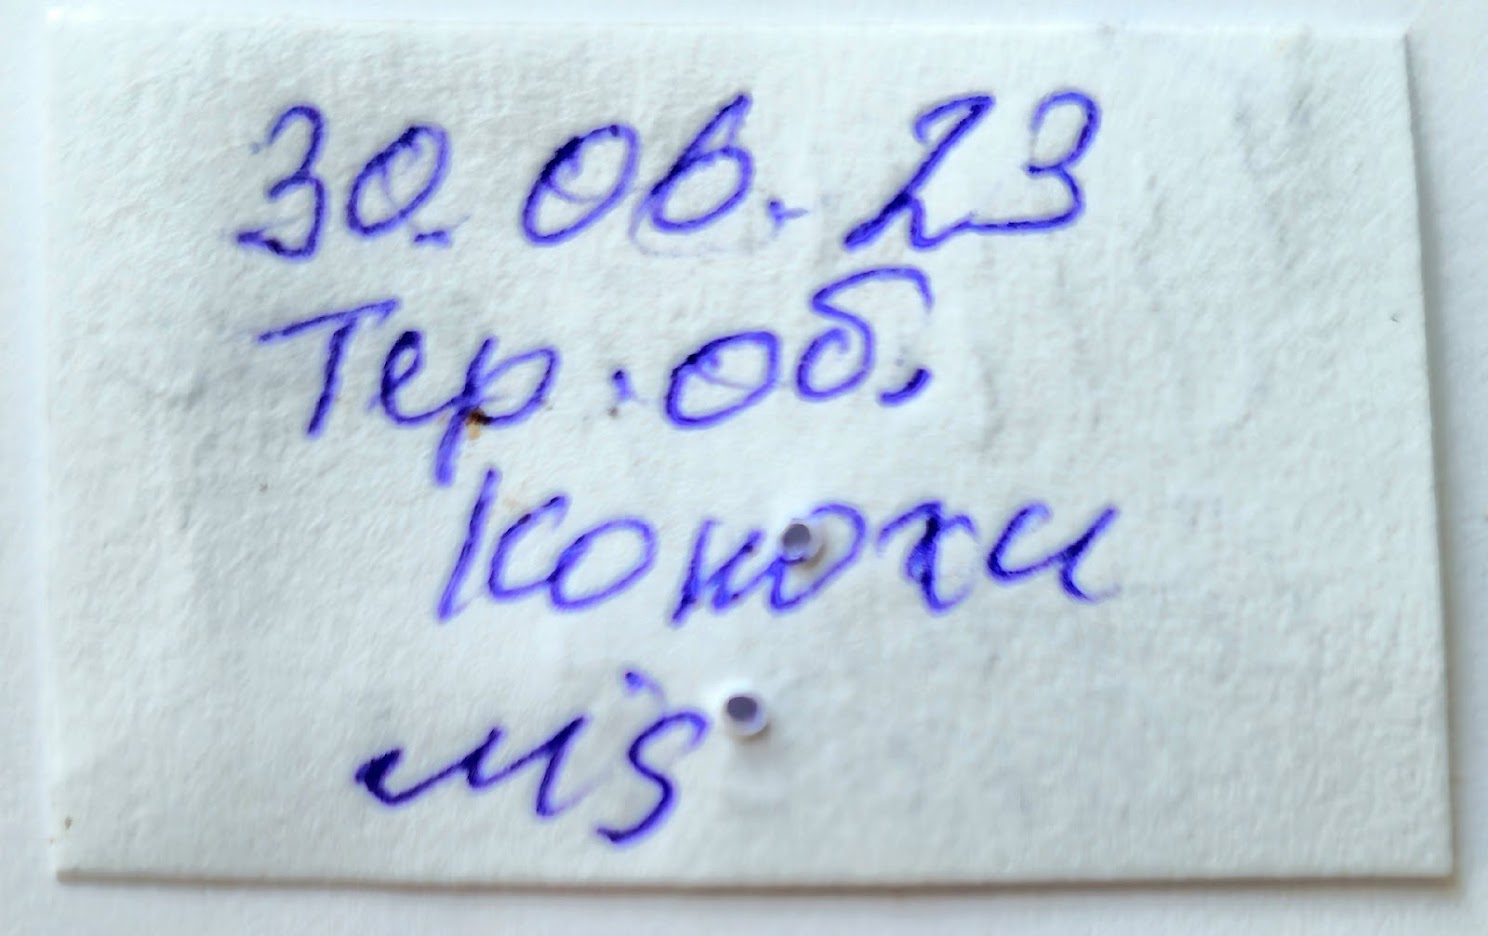 30.06.23
Тер. об.
Конохи